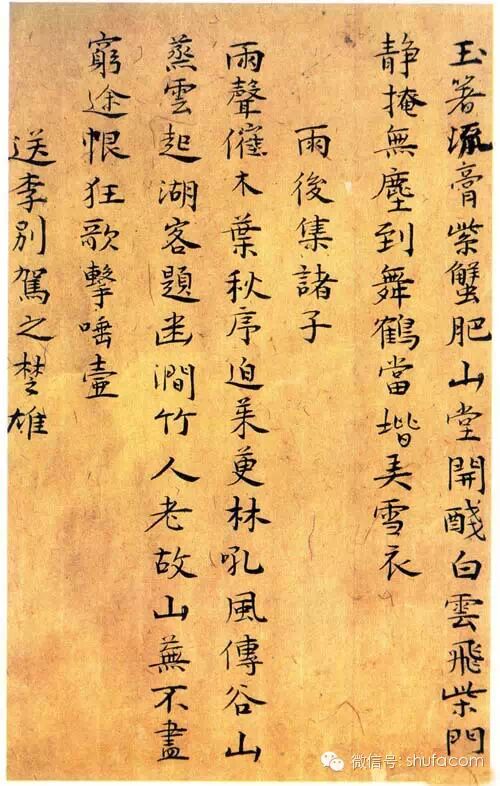 玉箸流膏紫蟹肥山堂開醆白雲飛柴門
静掩無塵到舞鶴當堦美雪衣
雨後集諸子
雨聲催木葉秋序迫茱萸林吼風傳谷山
蒸雲起湖客題幽澗竹人老故山蕪不盡
窮途恨狂歌擊唾壷
送李别駕之楚雄
微信号: shufacom